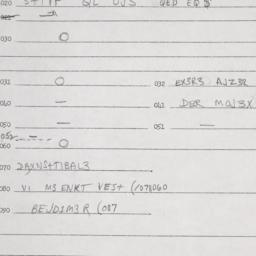 020 S+TIPF QL OJS QED EQ$
030 O
031 O 032 EXSR3 AJZ3R
040 — 041 DER MQJ3X
050 — 051 —
052 —
060 O
070 DAXNS+TIBAL3
080 VI MSENKT VES+ (1078060
090 BEJD1M3R (087